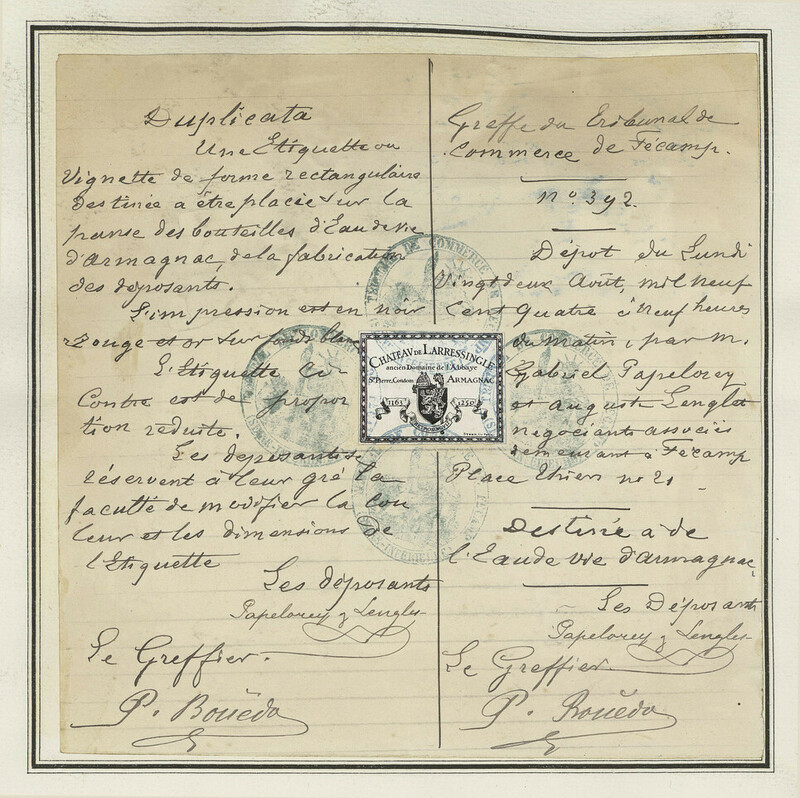 Duplicata
Une Etiquette ou
Vignette de forme rectangulaire
destinée a être placée sur la
panse des bouteilles d'Eau de vie
d'Armagnac, de la fabrication
des déposants.
L'impression est en noir
rouge et or sur fonds blanc
L'Etiquette Ci
Contre est de propor
tion réduite.
Les deposants se
réservent à leur gré la
faculté de modifier la Cou
leur et les dimensions de
l'Etiquette
Les déposants
Papelorey & Lenglet
Le Greffier.
P. Bouëdo
CHATEAU DE LARRESSINGLE
ancien Domaine de l'Abbaye
St Pierre, Condom ARMAGNAC
1163 1250
TRIBUNAL DE COMMERCE DE
Greffe du Tribunal de
Commerce de Fécamp.
No. 392.
Dépot du Lundi
Vingt deux Août, mil neuf
Cent quatre à neuf heures
du matin, par M.
Gabriel Papelorey
et auguste Lenglet
négociants associés
demeurant a Fécamp
Place Thiers no 21
Destinée à de
l'Eau de vie d'armagnac,
Les Déposants
Papelorey & Lenglet
Le Greffier.
P. Bouëdo